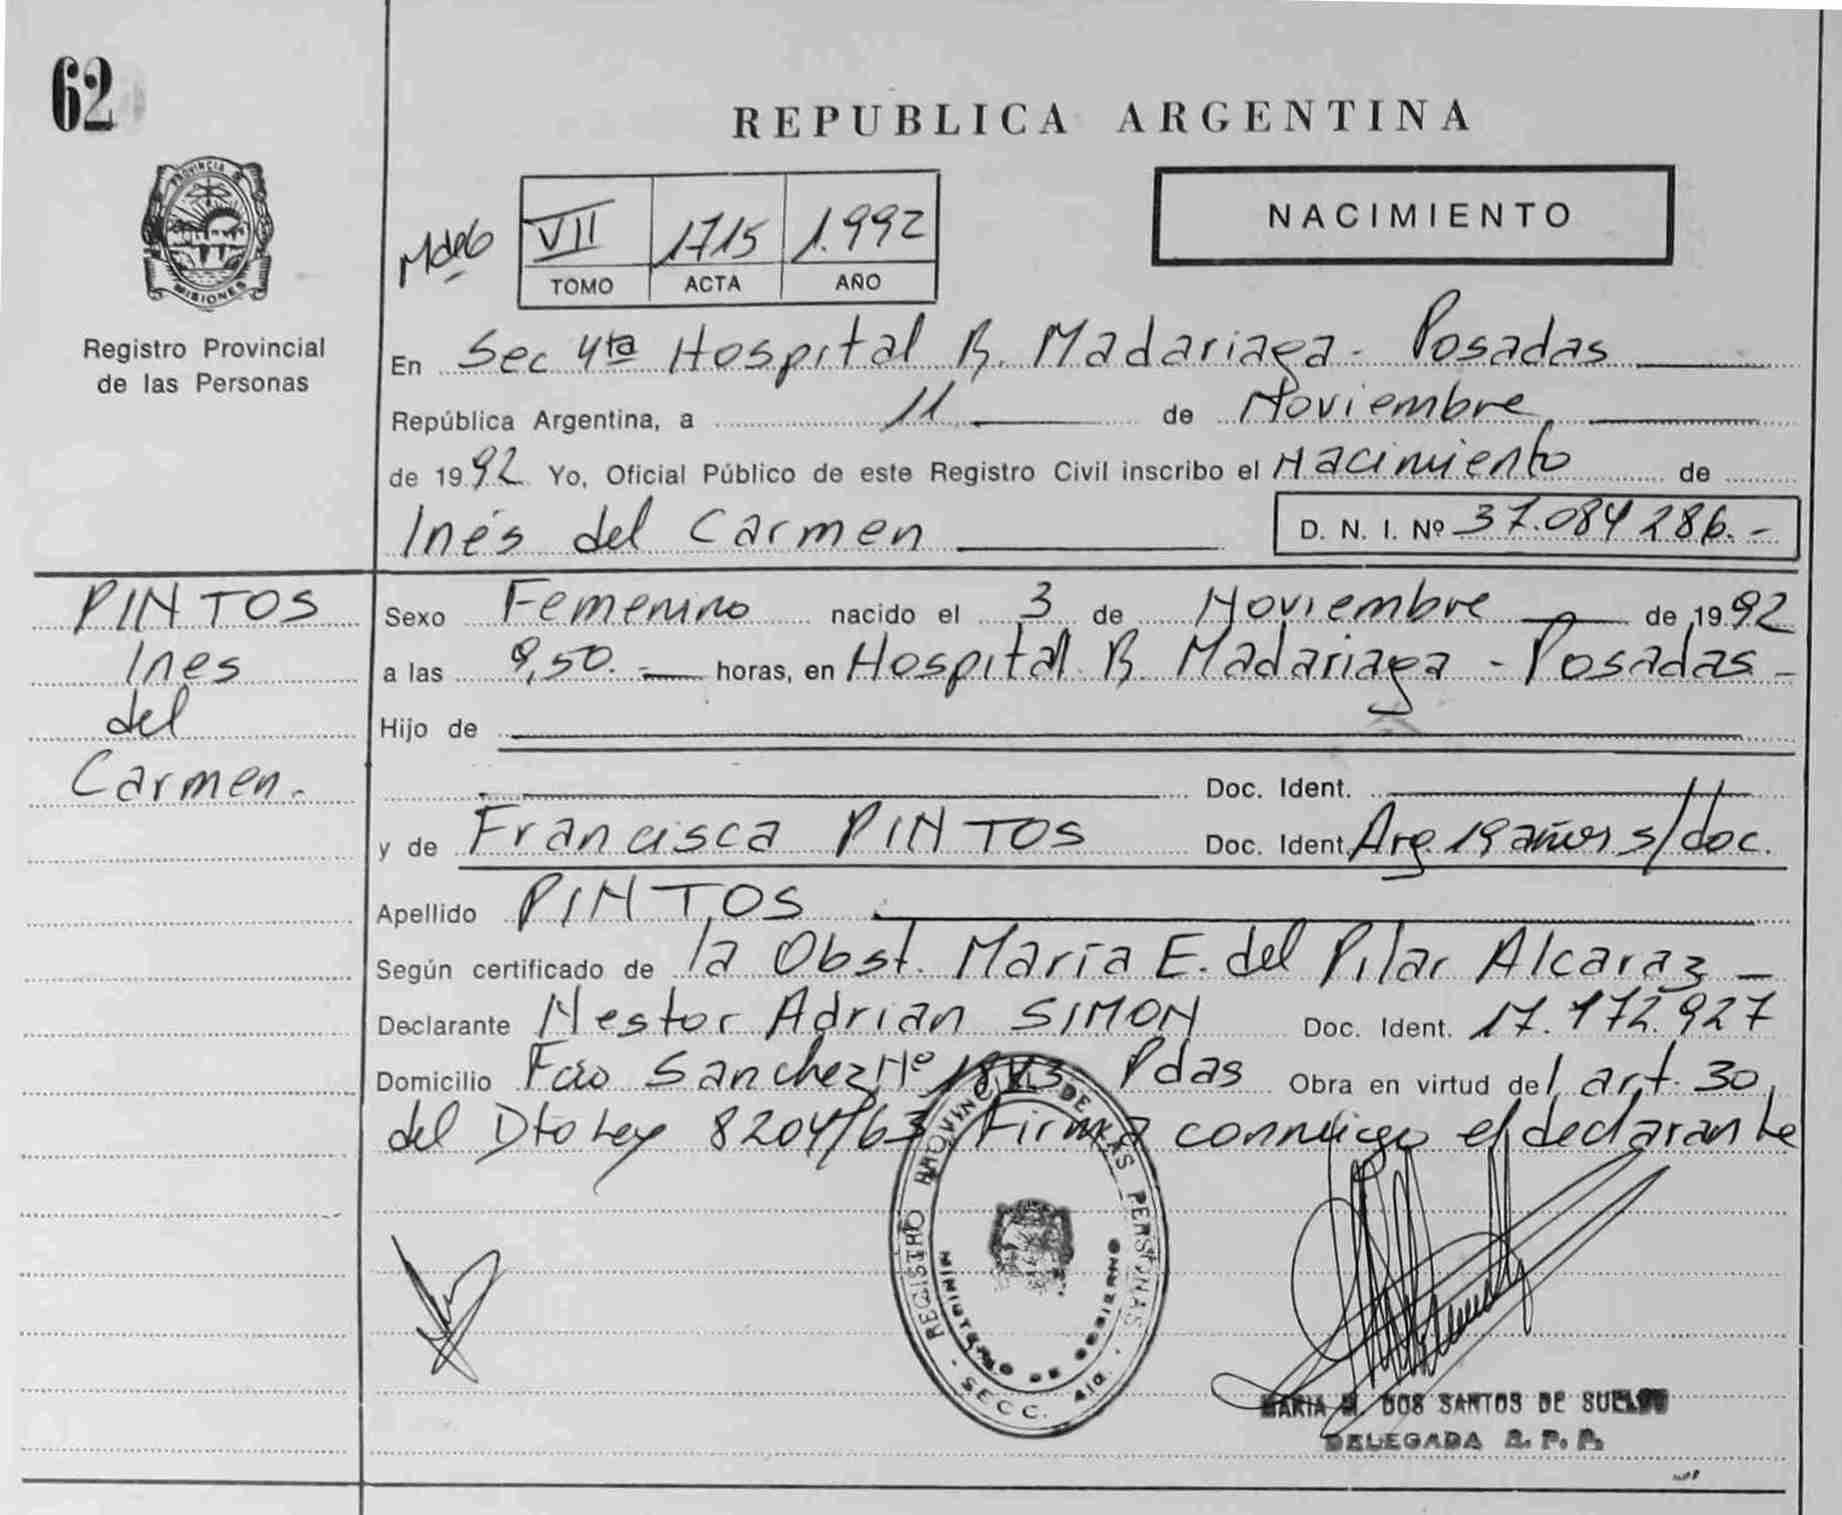 62
REPUBLICA ARGENTINA
PROVINCIA D
MISIONES
Registro Provincial
de las Personas
VII 1715 1.992
TOMO ACTA AÑO
NACIMIENTO
En Sec 4ta Hospital R. Madariaga - Posadas
República Argentina, a 11 de Noviembre
de 1992 Yo, Oficial Público de este Registro Civil inscribo el Nacimiento de
Inés del Carmen D. N. I. Nº 37.084 286.-
PINTOS
Ines
del
Carmen.
Sexo Femenino nacido el 3 de Noviembre de 1992
a las 9,50.- horas, en Hospital R. Madariaga - Posadas -
Hijo de
Doc. Ident.
y de Francisca PINTOS Doc. Ident. Arg. 19 años s/doc.
Apellido PINTOS
Según certificado de la Obst. María E. del Pilar Alcaraz -
Declarante Nestor Adrian SIMON Doc. Ident. 17.172.927
Domicilio Fco Sanchez Nº 1843 Pdas Obra en virtud del art. 30
del Dto Ley 8204/63 Firma conmigo el declarante
REGISTRO PROVINCIAL DE LAS PERSONAS
MINISTERIO DE GOBIERNO
- SECC. 4ta. -
MARIA M. DOS SANTOS DE
DELEGADA R. P. P.